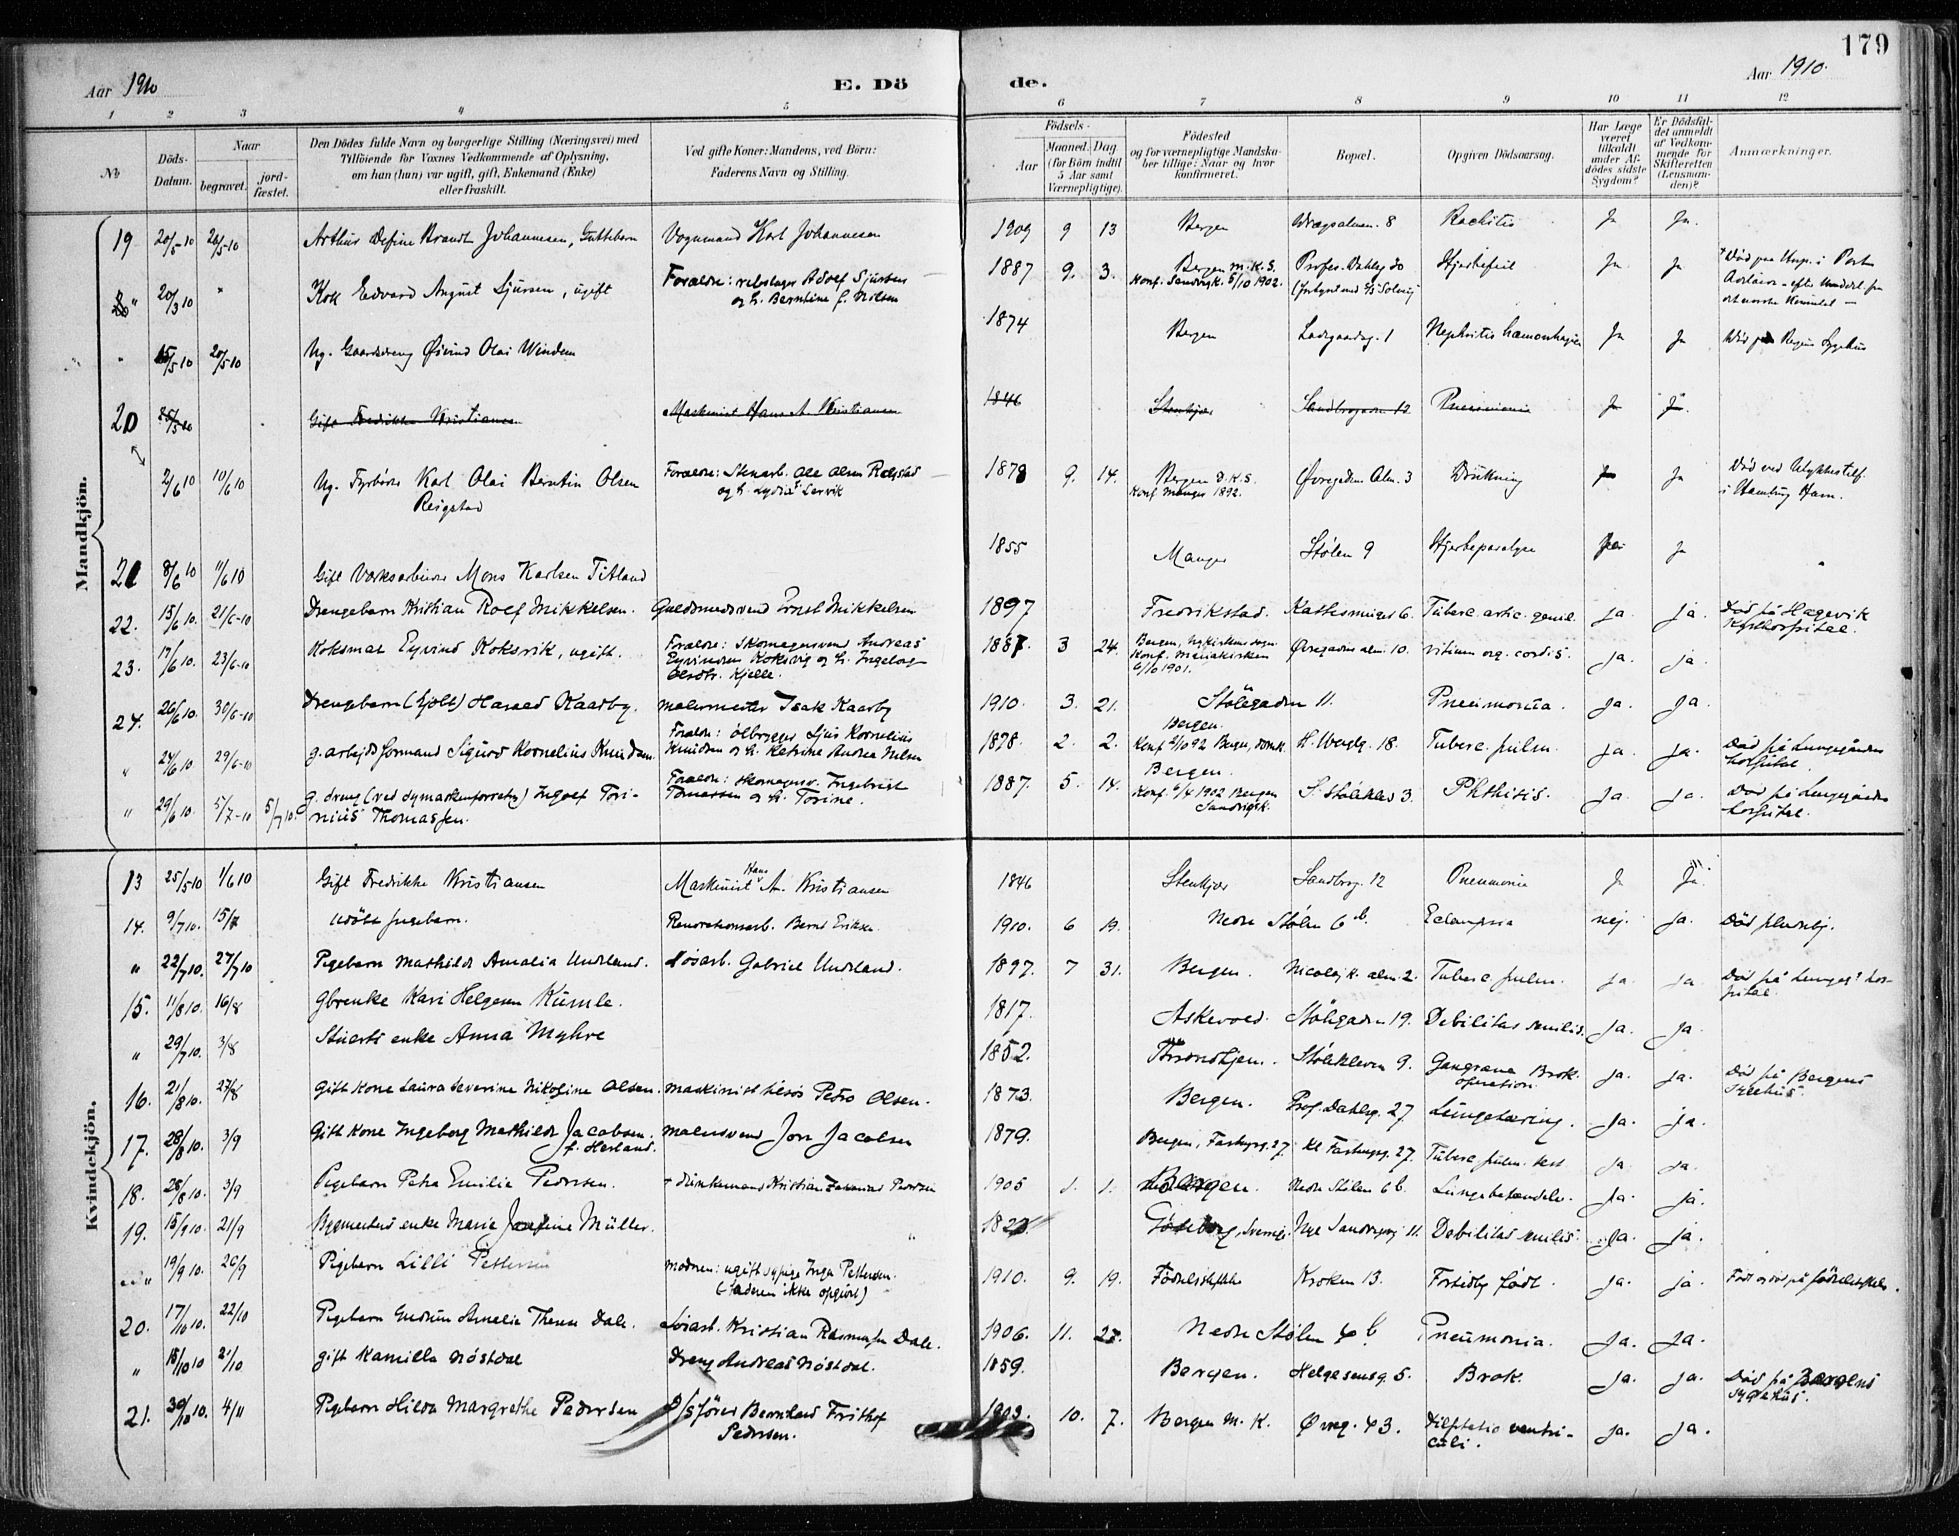 179
Aar 1910
E. Döde.
Aar 1910.
1 2 3 4 5 6 7 8 9 10 11 12
No
Döds-Datum.
Naar
begravet.
jord-fæstet.
Den Dödes fulde Navn og borgerlige Stilling (Næringsvei) med
Tilföiende for Voxnes Vedkommende af Oplysning,
om han (hun) var ugift, gift, Enkemand (Enke)
eller fraskilt.
Ved gifte Koner: Mandens, ved Börn:
Faderens Navn og Stilling.
Födsels-
Aar
Maaned. Dag
(for Börn indtil
5 Aar samt
Værnepligtige).
Födested
og for værnepligtige Mandska-
ber tillige: Naar og hvor
konfirmeret.
Bopæl.
Opgiven Dödsaarsag.
Har Læge
været
tilkaldt
under Af-
dödes sidste
Sygdom?
Er Dödsfal-
det anmeldt
af Vedkom-
mende for
Skifteretten
(Lensman-
den)?
Anmærkninger.
Mandkjön.
19 20/5-10 26/5-10 Arthur Brandt Johannesen, Guttebarn Vognmand Karl Johannesen 1909 9 13 Bergen 8 Rachitis Ja Ja
" 20/3 10 " Kok Edvard August Sjursen, ugift Forældre: rebslager Adolf Sjursen
og h. Berntine f. Nilsen 1887 9. 3. Bergen M.K.S.
Konf. Sandvigk. 5/10 1902. Hjertefeil Ja Ja
" 15/5 10 20/5-10 Ug. Gaardsdreng Øivind Olai Windem 1874 Bergen Ladegaardsg. 1 Nephritis Ja Ja Död paa Bergens Sygehus
20 25/5 10 Gift Fredrikke Kristiansen Maskinist Hans A. Kristiansen 1846 Stenkjær Sandbrogaden 12 Pneumonia Ja Ja.
2/6 10 10/6 10 Ug. Fyrböter Karl Olai Berntin Olsen
Reigstad Forældre: Stenarb. Ole Olsen Reigstad
og h. Lydia Lervik 1878 9. 14. Bergen D.K.S.
Konf. Manger 1892. Øvregadens Alm. 3 Drukning Ja Död ved Ulykkestilf.
i Hamburg Havn.
21 8/6 10 11/6 10 Gift Mons Karlsen Titland 1855 Manger Stölen 9 Hjerteparalyse Ja
22. 15/6 10. 21/6-10 Drengebarn Kristian Rolf Mikkelsen. Guldsmedsvend Ernst Mikkelsen 1897 Fredrikstad. 6. Tuberc. artic. genu. Ja. Ja. Död på Hagevik
Kysthospital.
23. 17/6 10. 23/6-10 Koksmat Eyvind Koksvik, ugift. Forældre: Skomagersvend Andreas
Eyvindsen Koksvig og h. Ingeborg
Kjelle. 1887 3 24. Bergen, Nykirkens sogn
Konf. Mariakirken
6/10 1901. Øvregadens alm. 10. Vitium org. cordis. Ja. Ja.
24. 26/6 10. 30/6-10 Drengebarn Harald Kaarby. Malermester Isak Kaarby 1910. 3. 21. Stölegaden 11. Pneumonia. Ja. Ja.
" 24/6 10 29/6-10 g. arbeidsformand Sigurd Kornelius Knudsen. Forældre: ölbrygger Kornelius
Knudsen og h. Andrea Nilsen 1878. 2. 2. Bergen.
Konf. 2/10 92 Bergen, domk. H. Wergelg. 18. Tuberc. pulm. Ja. Ja. Död på Lungegårdens
hospital.
" 29/6 10. 5/7-10 5/7 10. g. dreng Ingolf Tori-
nius Thomassen. Forældre: skomagersv. Ingebrigt
Tomassen og h. Torine. 1887. 5. 14. Bergen.
Konf. 6/4 1902 Bergen
Sandvigk. 3. Phthisis. Ja. Ja. Död på Lungegårdens
hospital.
Kvindekjön.
13 25/5 10 1/6 10 Gift Fredrikke Kristiansen Maskinist Hans A. Kristiansen 1846 Stenkjær Sandbrog. 12 Pneumonia Ja Ja
14. 9/7 10. 15/7 Udöbt pigebarn. Renovationsarb. Bernt Eriksen 1910. 6 19. Nedre Stölen 6 b. Eclampsia nej. Ja. Död pludselig.
" 22/7 10. 27/7 10 Pigebarn Mathilde Amalia Undeland. Lösarb. Gabriel Undeland. 1897. 7 31. Bergen. Nicolajk. alm. 2. Tuberc. pulm. Ja. Ja. Död på Lungeg. hos-
pital.
15. 11/8 10. 16/8 Gbrenke Kari Helgesen Kumle. 1817. Askevold. Stölegaden 19. Debilitas senilis. Ja. Ja.
" 29/7 10. 3/8 Stuerts enke Anna Myhre 1852. Throndhjem. Stölekleven 9. Gangræna Brok.
operation. Ja. Ja. Död på Bergens
Sygehus.
16. 21/8 10. 27/8 Gift Kone Laura Severine Nikoline Olsen. Maskinist tilsös Petro Olsen. 1873. Bergen. Prof. Dahlsg. 27. Lungetæring. Ja. Ja.
17. 28/8 10. 3/9 Gift Kone Ingeborg Mathilde Jacobsen.
f. Herland. Malersvend Jon Jacobsen 1879. Bergen, 27 Kl 27. Tuberc. pulm. Ja Ja.
18. 28/8 10. 3/9 Pigebarn Petra Emilie Pedersen. Kristian Pedersen 1905 1. 1. Bergen. Nedre Stölen 6 b. Lungebetændelse. Ja. Ja.
19. 15/9 10. 21/9 Bygmesters enke Marie Josefine Müller. Göteborg, Sverrig. Nye Sandviksvej 11. Debilitas senilis. Ja. Ja.
" 19/9 10. 26/9 Pigebarn Lilli Pettersen Modren: ugift sypige Inga Pettersen.
(Faderen ikke opgivet) 1910. 9. 19. Födselsstiftelse Kroken 13. Fortidlig födt. Ja. Ja Födt og död på födselsstiftelsen.
20. 17/10 10. 22/10 Pigebarn Gudrun Amalie Therese Dale. Lösarb. Kristian Rasmussen Dale. 1906. 11. Nedre Stölen 4 b Pneumonia. Ja. Ja.
" 18/10 10 21/10 gift Kamilla Nöstdal Dreng Andreas Nöstdal. 1859. Bergen. Helgesensg. 5. Brok. Ja. Ja. Död på Bergens
Sygehus.
21. 30/10 10. 4/11 Pigebarn Hilda Margrethe Pedersen D/sförer Bernhard Frithof
Pedersen. 1903. 10. 7. Bergen M. K. Øvreg. 43. Dilatatio ventri-
culi. Ja. Ja.